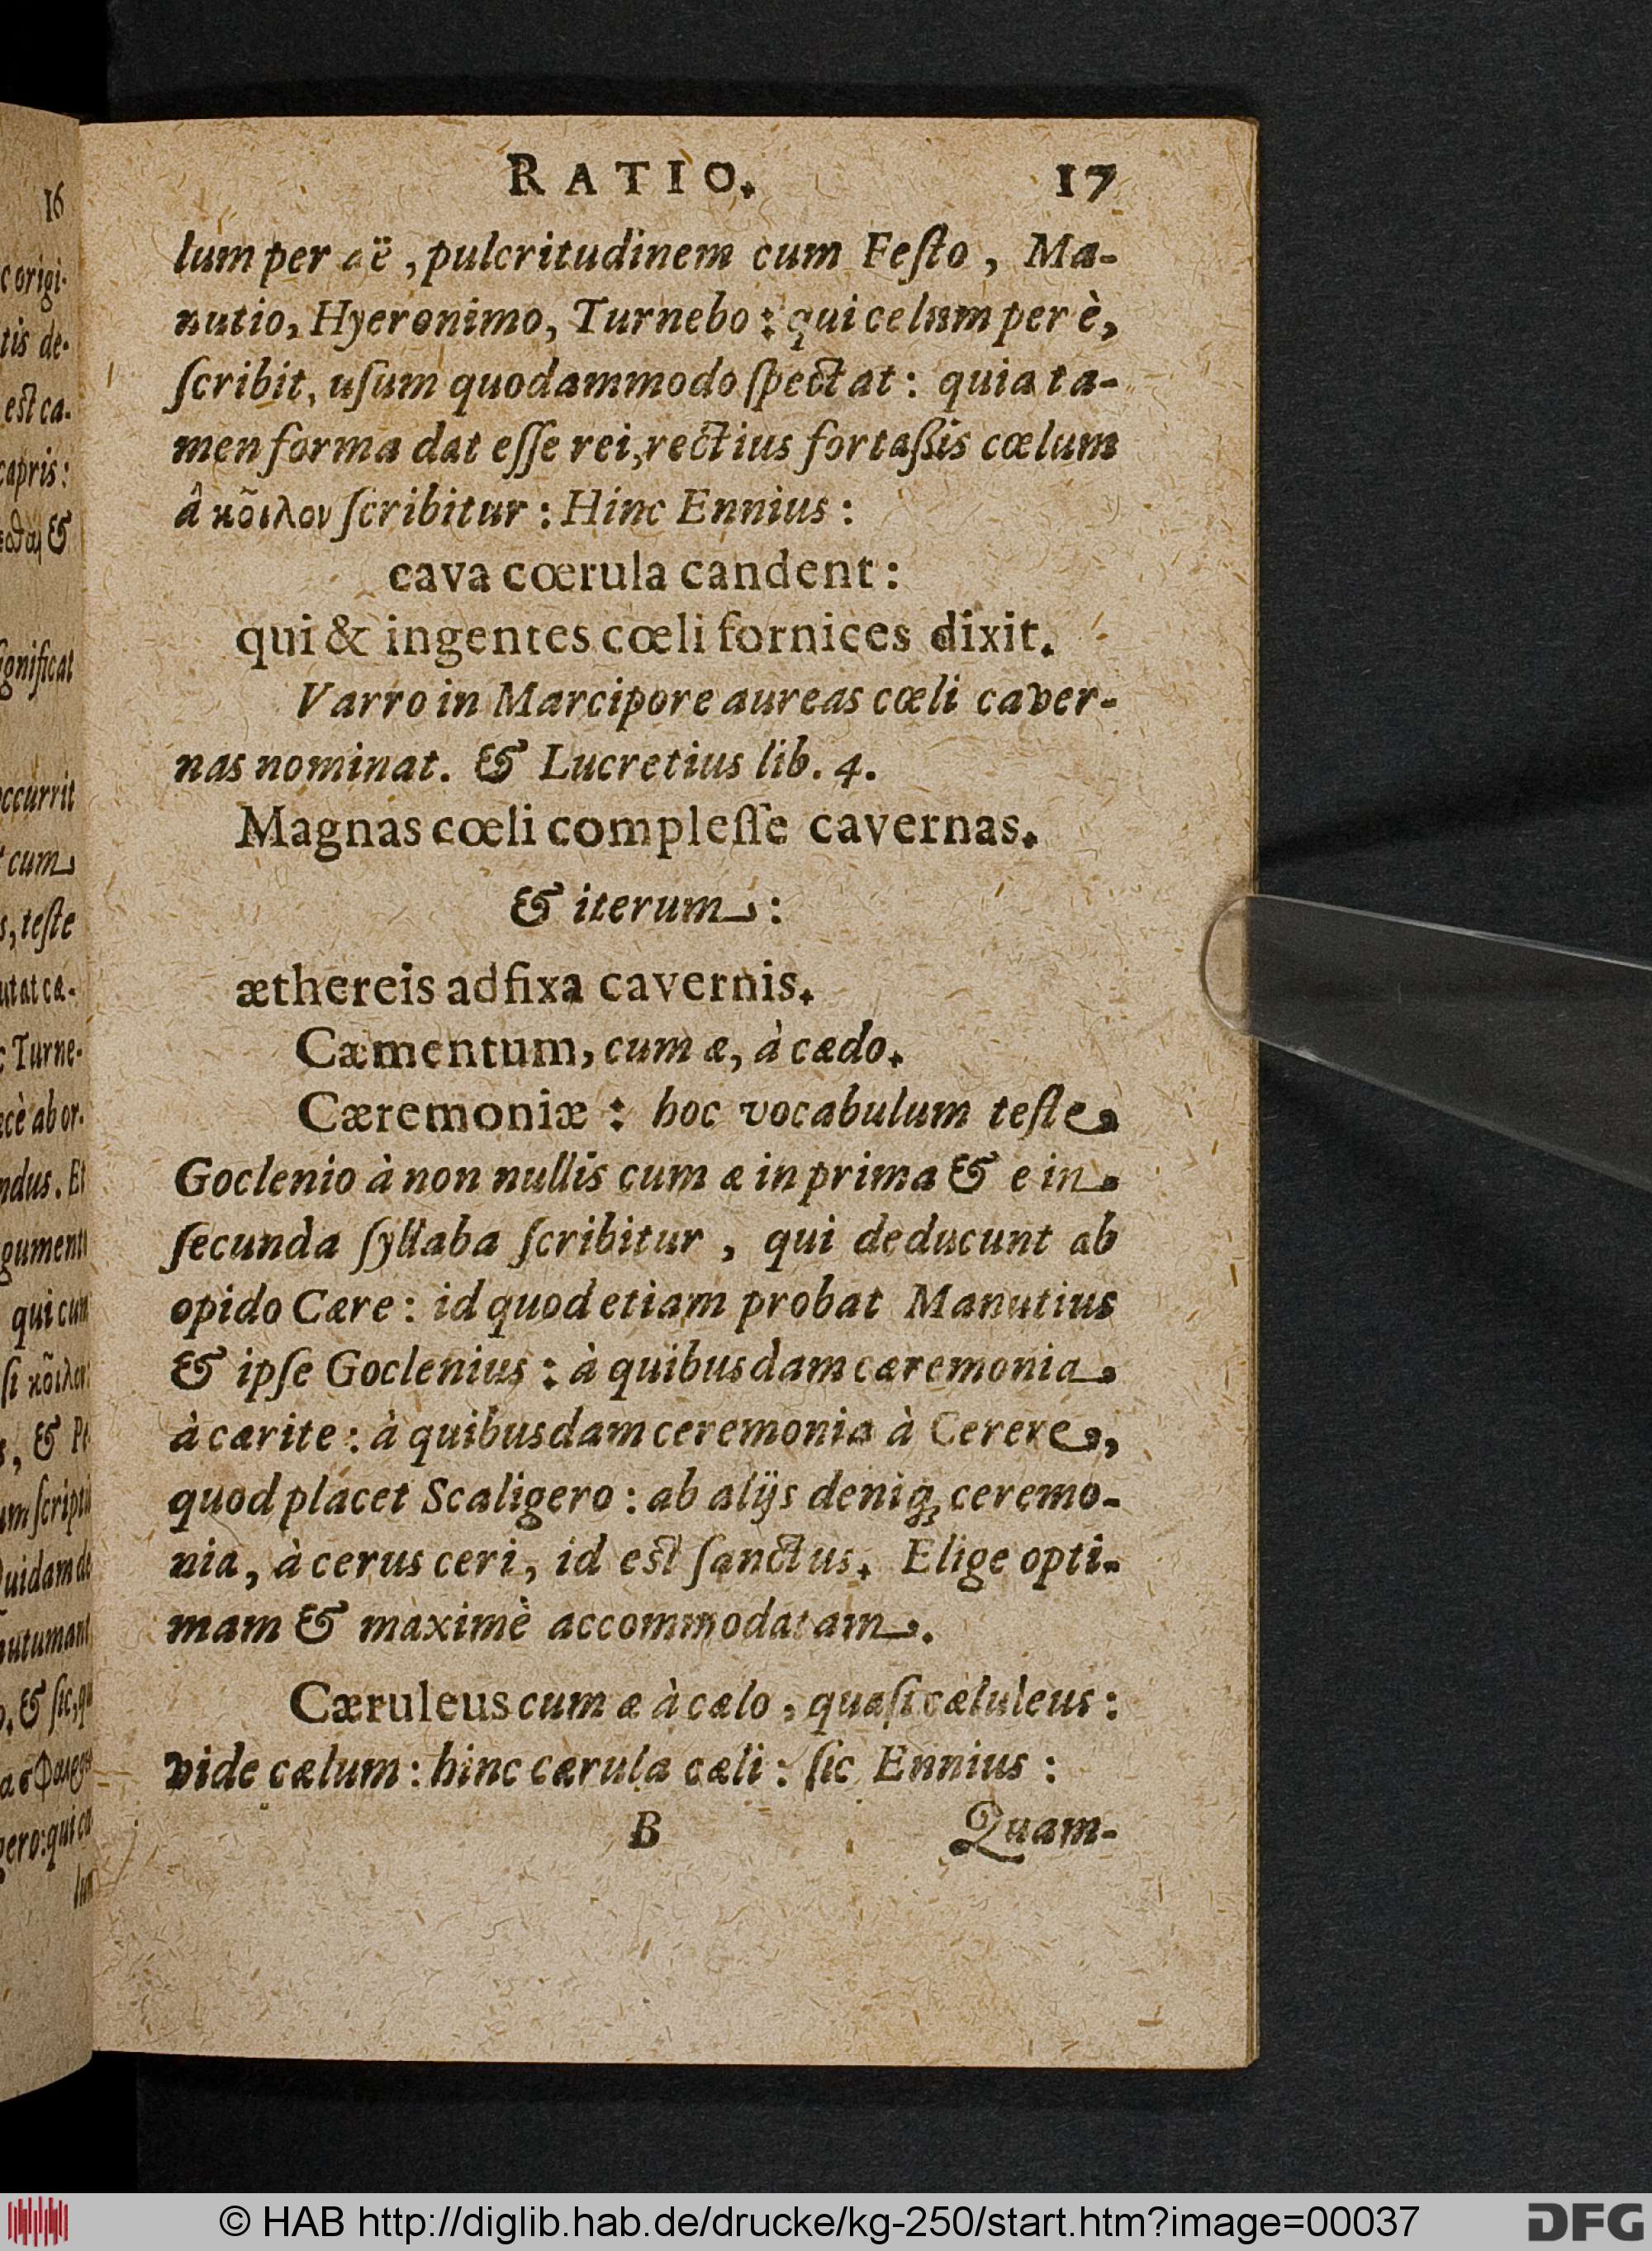 RATIO. 17
lum per aë, pulcritudinem cum Feſto, Ma-
nutio, Hyeronimo, Turnebo: qui celum per è,
ſcribit, uſum quodammodo ſpectat: quia ta-
men forma dat eſſe rei, rectius fortaßis cœlum
â κοῖλον ſcribitur: Hinc Ennius:
cava cœrula candent:
qui & ingentes cœli fornices dixit.
Varro in Marcipore aureas cœli caver-
nas nominat. & Lucretius lib. 4.
Magnas cœli compleſſe cavernas.
& iterum:
æthereis adfixa cavernis.
Cæmentum, cum æ, à cædo.
Cæremoniæ: hoc vocabulum teſte
Goclenio à non nullis cum æ in prima & e in
ſecunda ſyllaba ſcribitur, qui deducunt ab
opido Cære: id quod etiam probat Manutius
& ipſe Goclenius: à quibusdam cæremonia
à cærite: à quibusdam ceremonia à Cerere,
quod placet Scaligero: ab alijs deniq; ceremo-
nia, à cerus ceri, id est ſanctus. Elige opti-
mam & maximè accommodatam.
Cæruleus cum æ à cælo, quaſi cæluleus:
vide cælum: hinc cærula cæli: ſic Ennius:
B Quam-
16
c origi-
tis de-
est ca-
capris:
&
ſignificat
occurrit
cum
s, teſte
utat ca-
c Turne-
ab or-
ndus. Et
gumenti
qui cum
ſi κοῖλον
s, & Pe
um ſcriptu
Quidam de
autumant
o, & ſic, qu
gero: qui cæ
lum
© HAB http://diglib.hab.de/drucke/kg-250/start.htm?image=00037
DFG